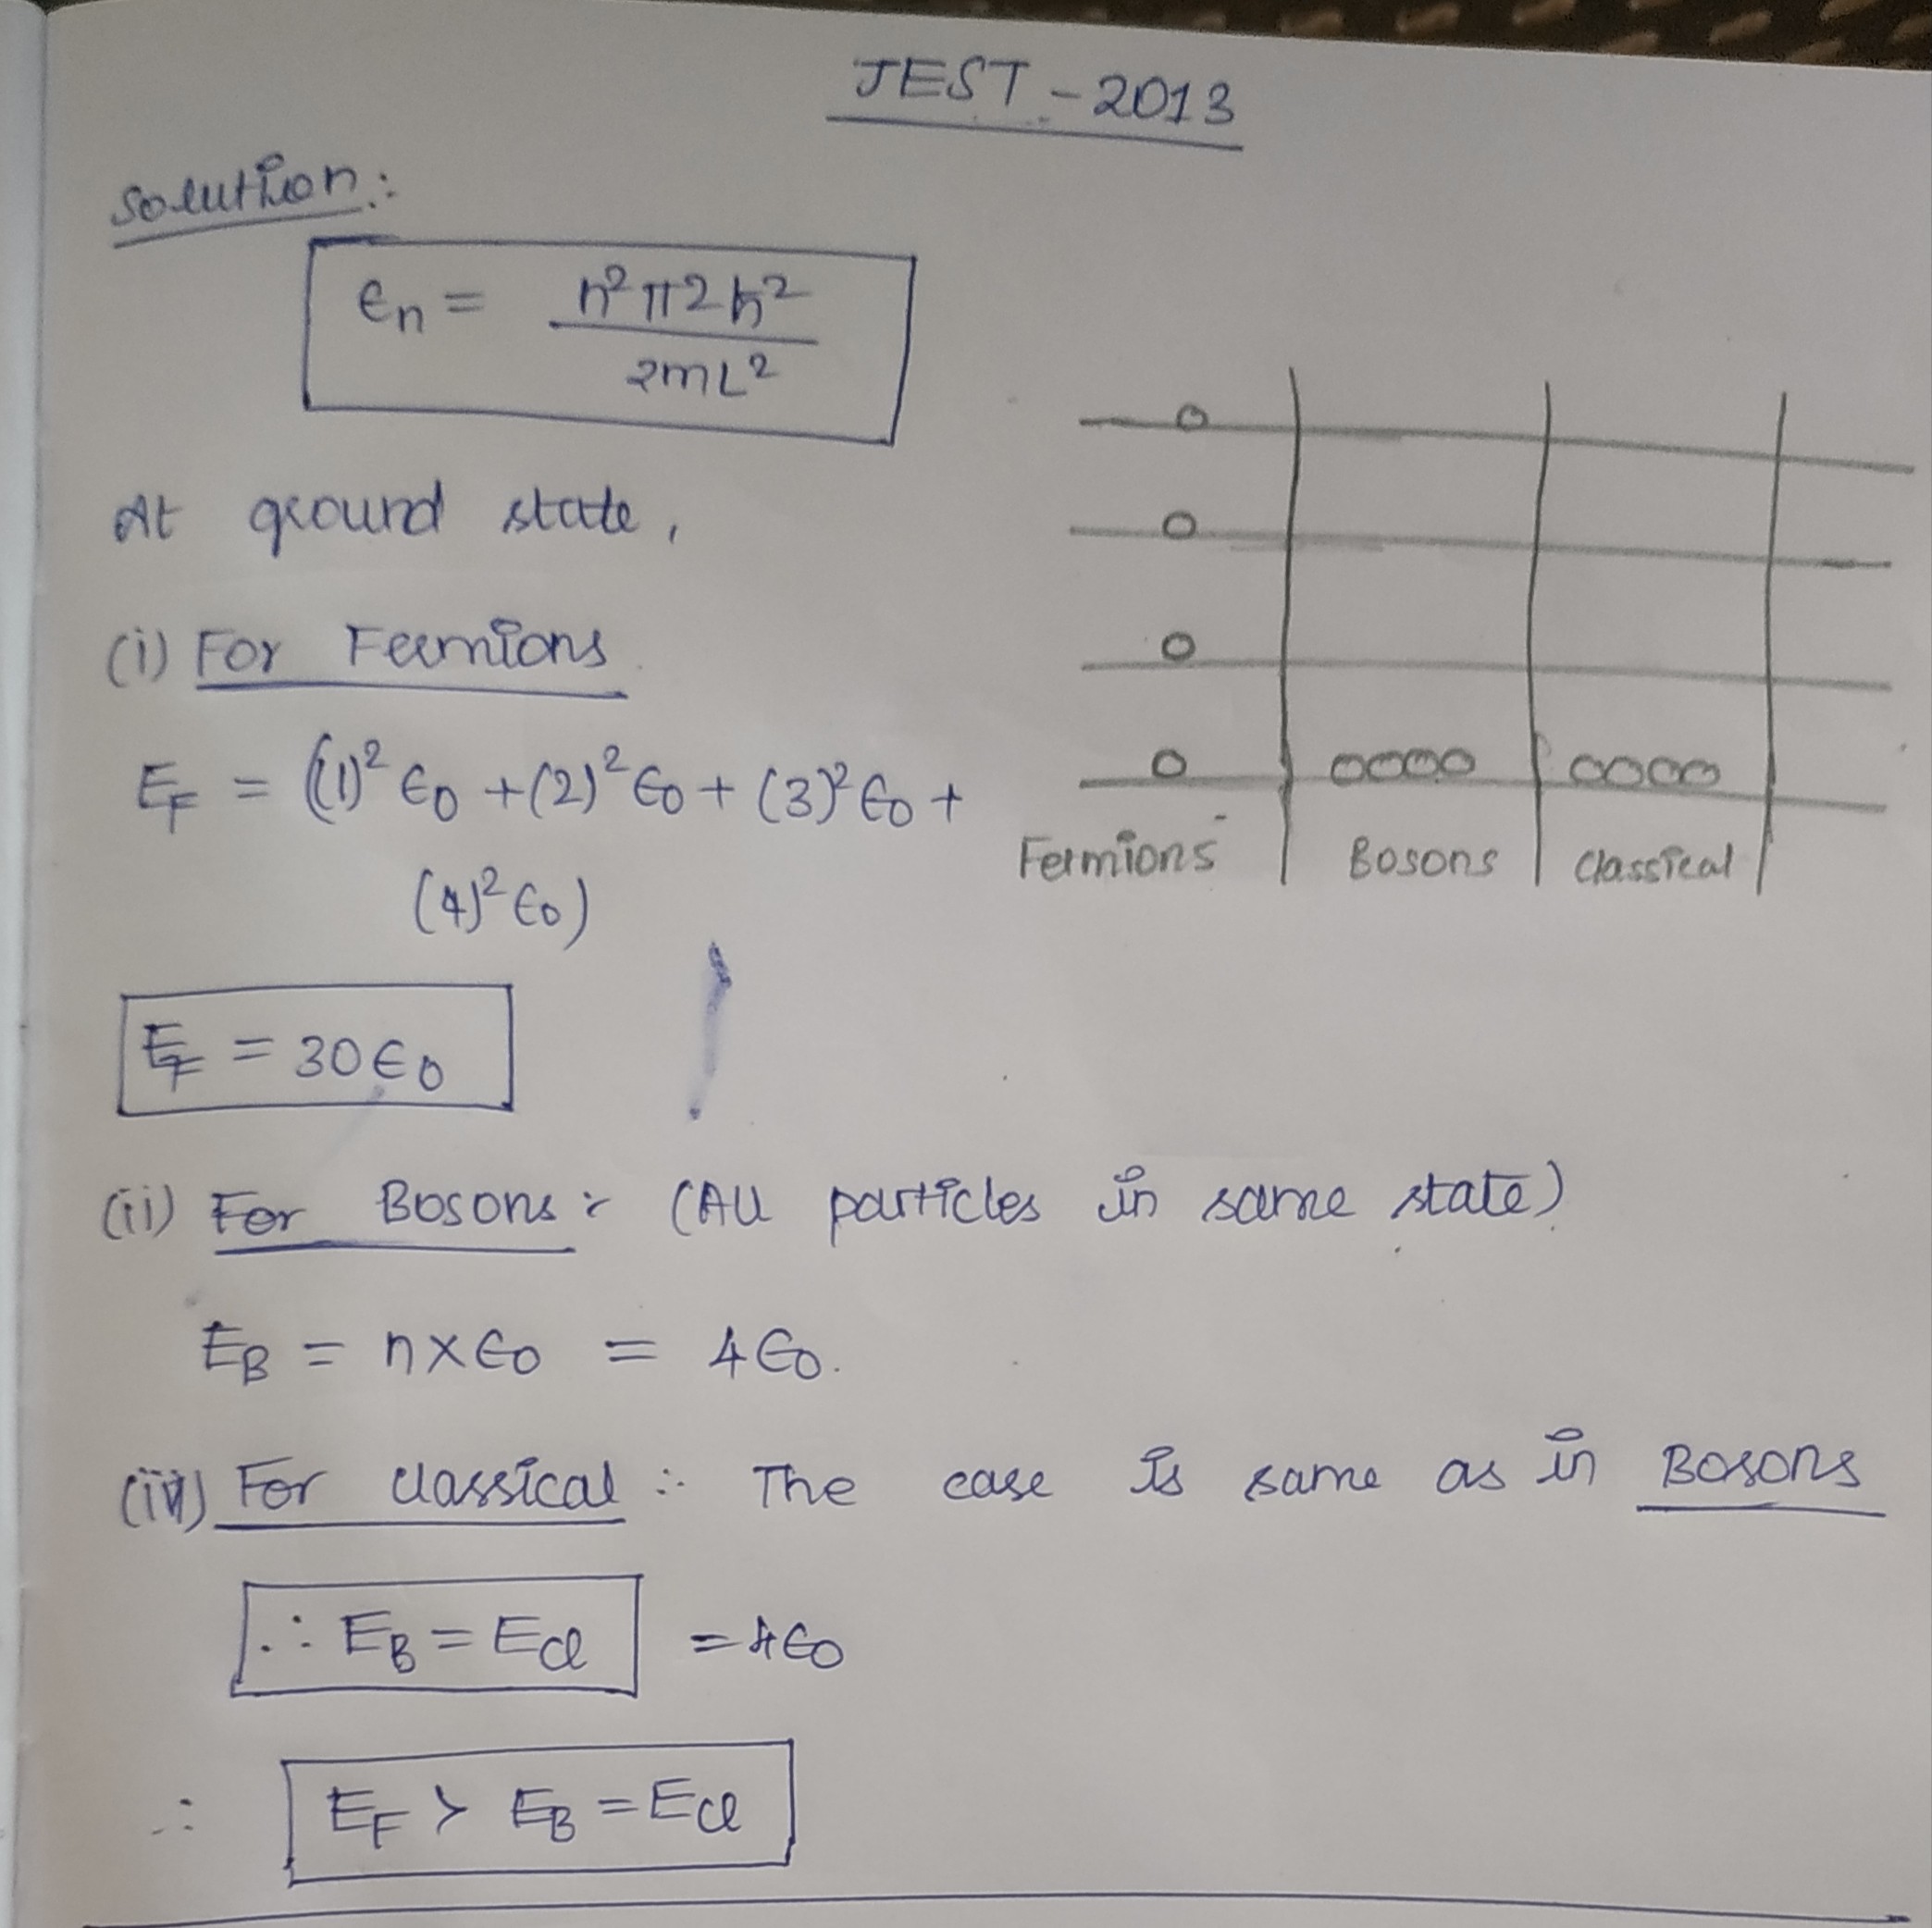 JEST - 2013
Solution:
ϵn = n²π2ħ² / 2mL²
At ground state,
(i) For Fermions
EF = ((1)² ϵ0 + (2)² ϵ0 + (3)² ϵ0 +
(4)² ϵ0)
Fermions Bosons Classical
EF = 30ϵ0
(ii) For Bosons: (All particles in same state)
EB = n×ϵ0 = 4ϵ0.
(iii) For classical: The case is same as in Bosons
∴ EB = Ecl = 4ϵ0
∴ EF > EB = Ecl